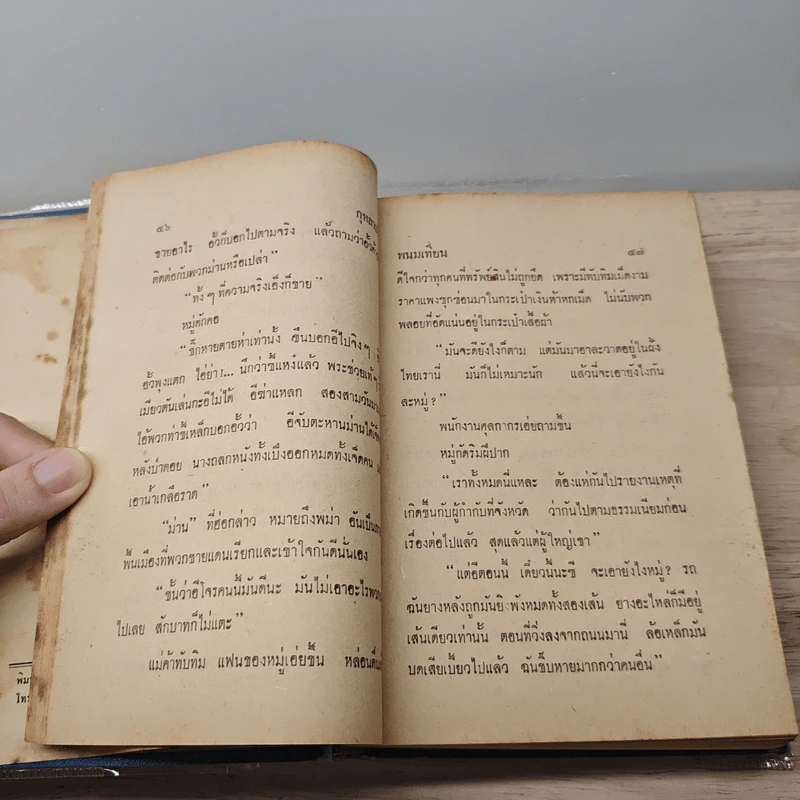 ๕๖
ขายอาไร อั้วก็บอกไปตามจริง แล้วถามว่าอั้ว
ติดต่อกับพวกม่านหรือเปล่า”
“ทั้ง ๆ ที่ความจริงเอ็งก็ขาย”
หมู่ดักคอ
“ชิ้กหายตายห่าเท่านั้ง ขืนบอกอีไปจิงๆ
อั้วพุงแตก ไอ่ย่า!... นึกว่าซี้แหง๋แล้ว พระช่วยเท้ๆ
เมียวตันเล่นกะอีไม่ได้ อีซ่าแหลก สองสามวันมา
ไอ้พวกท่าขี้เหล็กบอกอั้วว่า อีจับตะหานม่านได้เจ็ด
หลังป่าดอย นางถลกหนังทั้งเบิงออกหมดทั้งเจ็ดคน
เอาน้ำเกลือราด”
“ม่าน” ที่ฮ่อกล่าว หมายถึงพม่า อันเป็น
พื้นเมืองที่พวกชายแดนเรียกและเข้าใจกันดีนั่นเอง
“ชั้นว่าอีโจรคนนี้มันดีนะ มันไม่เอาอะไรพวก
ไปเลย สักบาทก็ไม่แตะ”
แม่ค้าทับทิม แฟนของหมู่เอ่ยขึ้น หล่อน
พนมเทียน ๕๗
ดีใจกว่าทุกคนที่ทรัพย์สินไม่ถูกยึด เพราะมีทับทิมเม็ดงาม
ราคาแพงซุกซ่อนมาในกระเป๋าเงินห้าหกเม็ด ไม่นับพวก
พลอยที่อัดแน่นอยู่ในกระเป๋าเสื้อผ้า
“มันจะดียังไงก็ตาม แต่มันมาอาละวาดอยู่ในฝั่ง
ไทยเรานี่ มันก็ไม่เหมาะนัก แล้วนี่จะเอายังไงกัน
ละหมู่?”
พนักงานศุลกากรเอ่ยถามขึ้น
หมู่กัดริมฝีปาก
“เราทั้งหมดนี่แหละ ต้องแห่กันไปรายงานเหตุที่
เกิดขึ้นกับผู้กำกับที่จังหวัด ว่ากันไปตามธรรมเนียมก่อน
เรื่องต่อไปแล้ว สุดแล้วแต่ผู้ใหญ่เขา”
“แต่อีตอนนี้ เดี๋ยวนี้นะซี จะเอายังไงหมู่? รถ
ฉันยางหลังถูกมันยิ พังหมดทั้งสองเส้น ยางอะไหล่ก็มีอยู่
เส้นเดียวเท่านั้น ตอนที่วิ่งลงจากถนนมานี่ ล้อเหล็กมัน
บดเสียเบี้ยวไปแล้ว ฉันฉิบหายมากกว่าคนอื่น”